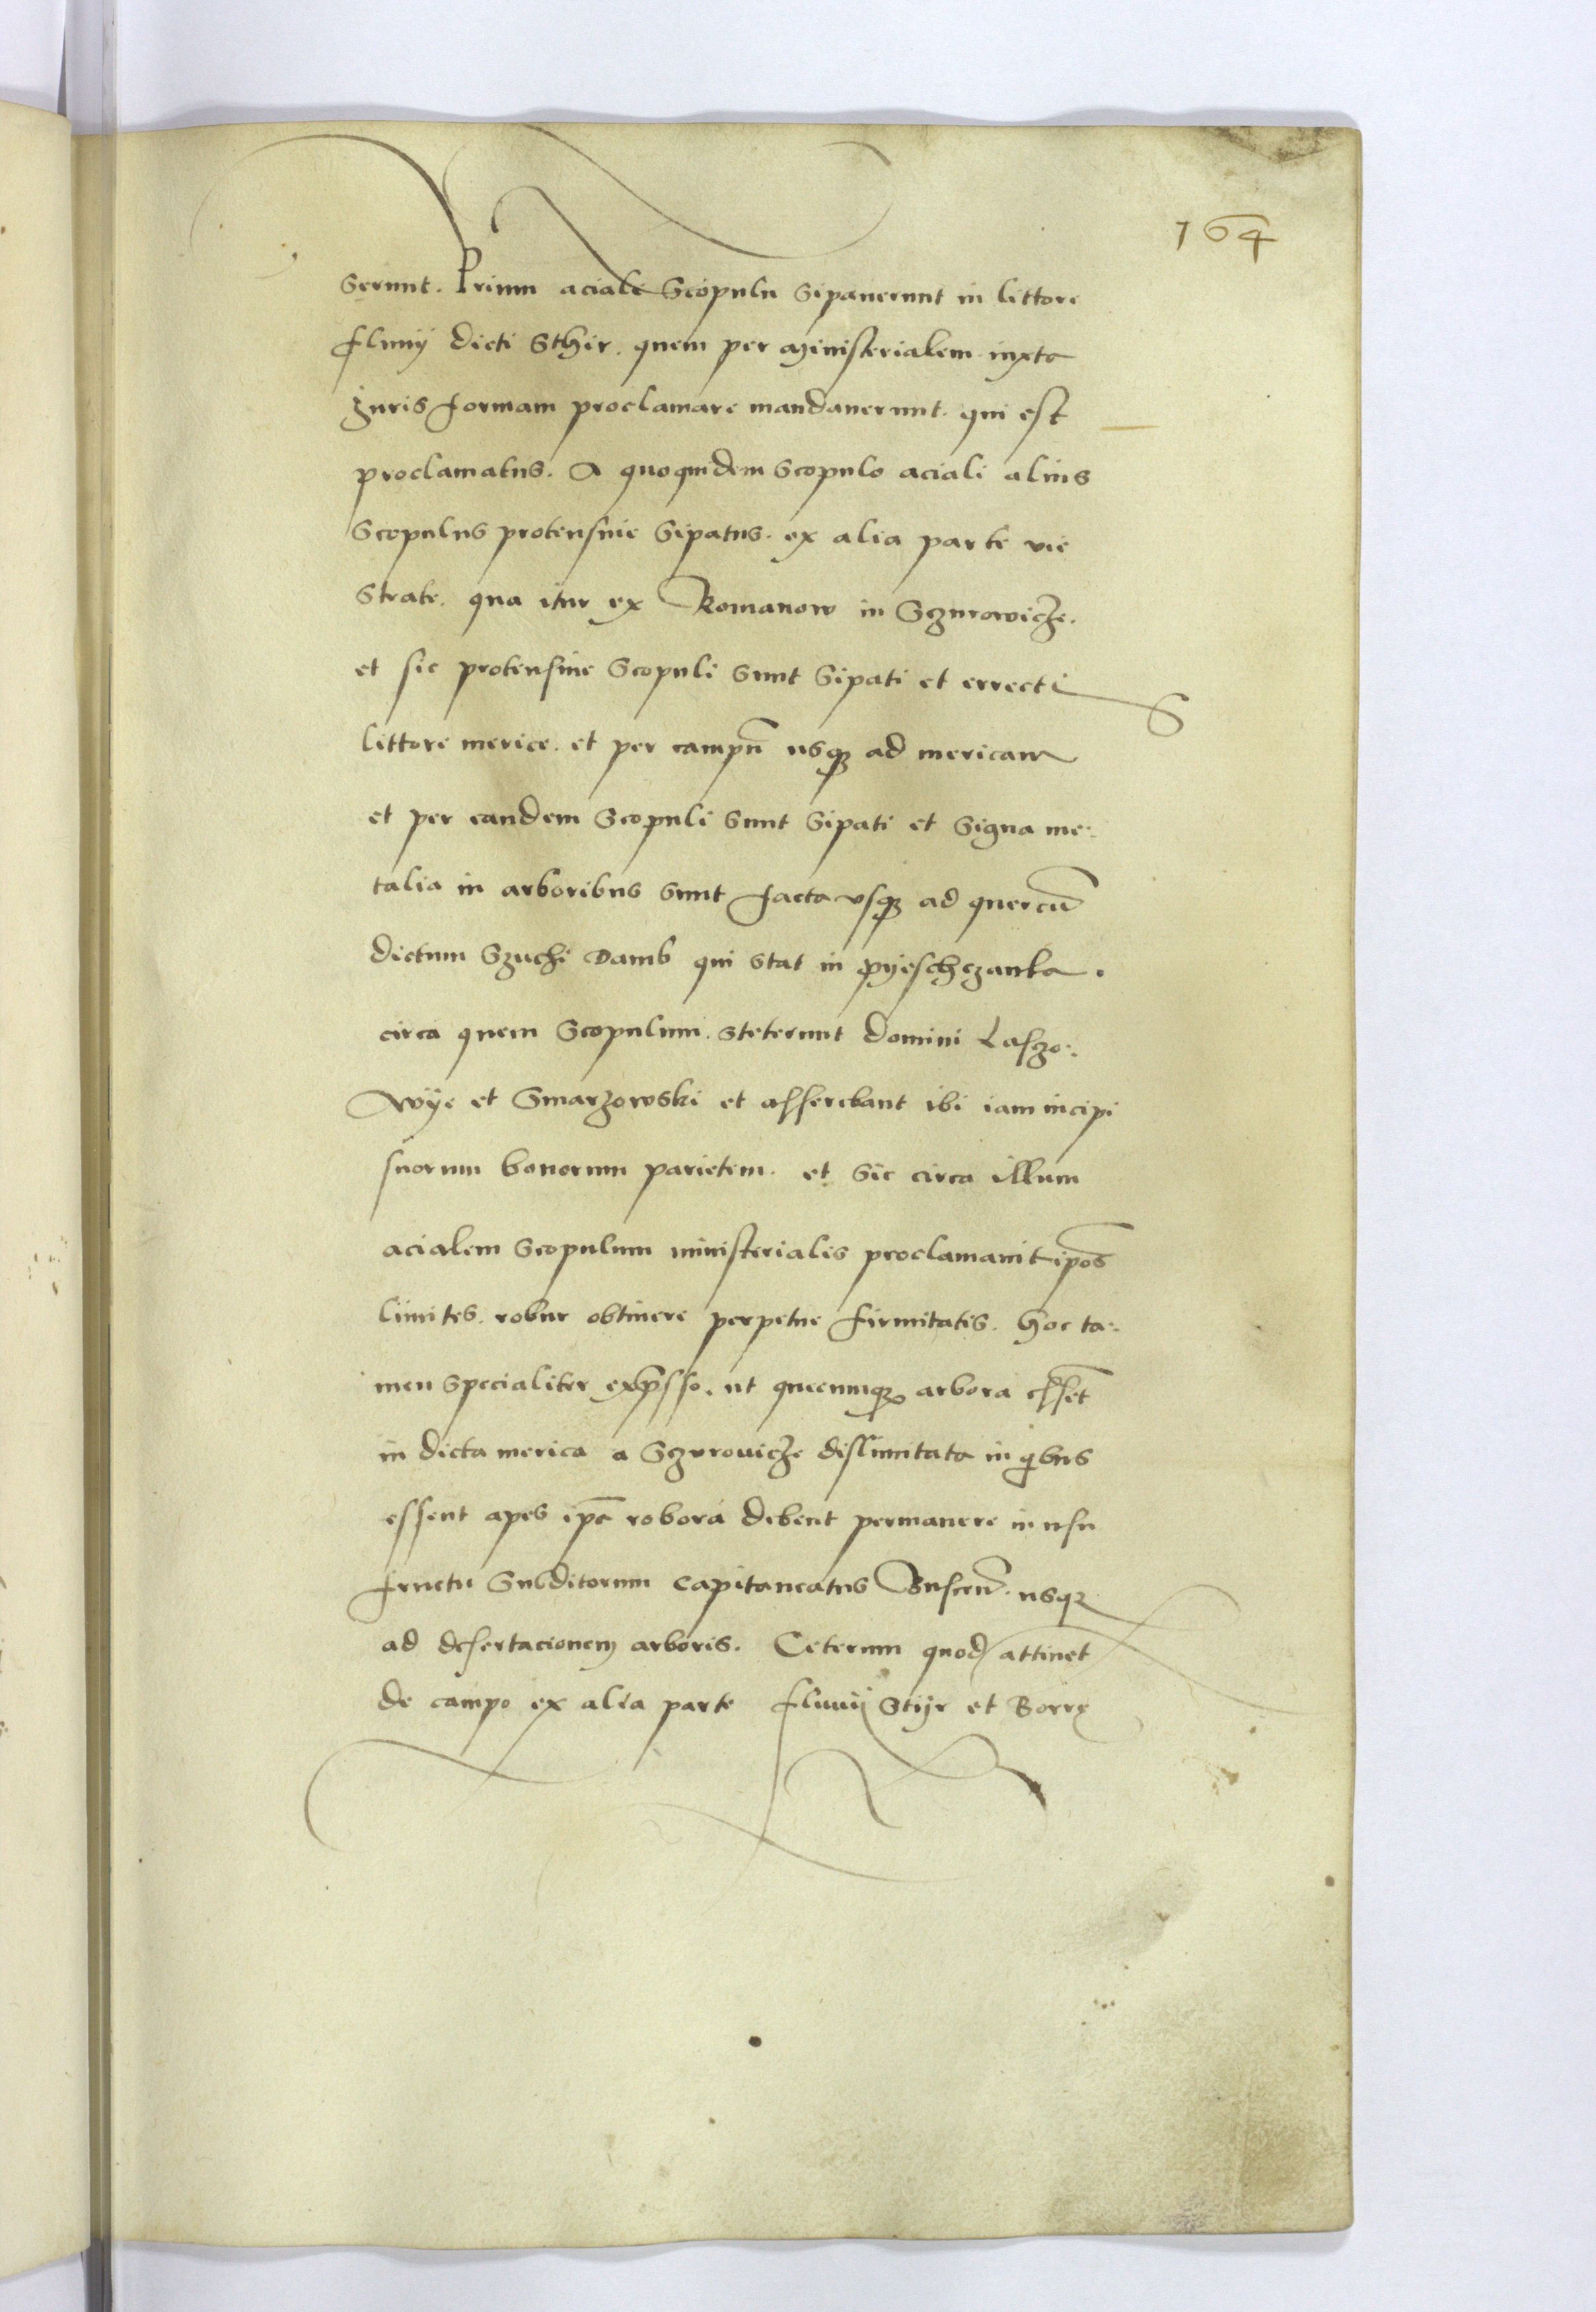 164
serunt. Primu aciale Scopulu Sipauerunt in littore
fluuij dicti Sthir. quem per ministerialem iuxta
Juris formam proclamare mandauerunt. qui est
proclamatus. A quoquidem Scopulo aciali alius
Scopulus protensiue Sipatus. ex alia parte vie
Strate. qua itur ex Romanow in Sczurowicze.
et sic protensiue Scopuli Sunt Sipati et errecti
littore merice. et per campū usq3 ad mericam
et per eandem Scopuli Sunt Sipati et Signa me:
talia in arboribus Sunt facta vsq3 ad quercū
dictum Szuchi Damb qui stat in pyeschczanka.
circa quem Scopulum. steterunt domini Laszo:
wye et Smarzowski et asserebant ibi iam incipi
suorum bonorum parietem. et Sic circa illum
acialem Scopulum ministerialis proclamauit ipōs
limites. robur obtinere perpetue firmitatis. hoc ta:
men specialiter exp̄sso. ut quecunq3 arbora essēt
in dicta merica a Sczvrouicze dislimitata in qibus
essent apes ip̄e robora debent permanere in usu
fructu Subditorum capitaneatus Buscen̄. usq3
ad desertacionem arboris. Ceterum quod attinet
de campo ex alia parte fluuij Stijr et Borrę